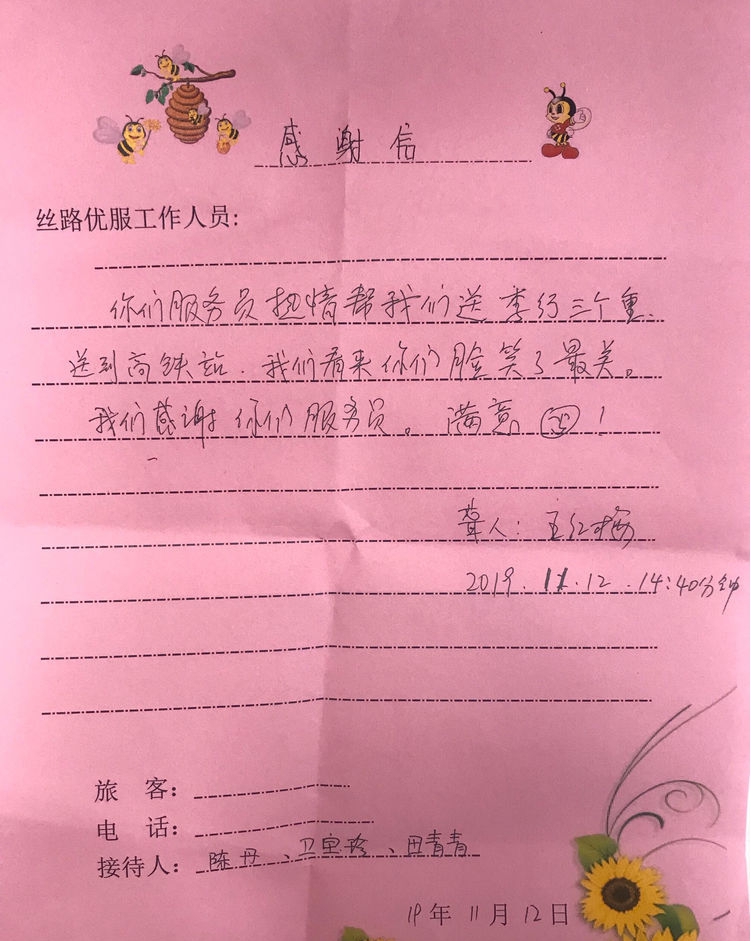 感谢信
丝路优服工作人员:
你们服务员热情帮我们送李行三个重、
送到高铁站.我们看来你们脸笑了最美。
我们感谢你们服务员。满意!
聋人:王红梅
2019.11.12.14:40分钟
旅 客:
电 话:
接待人:陈丹、卫宝珍、田青青
19年11月12日